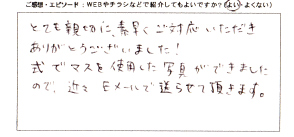 ご感想・エピソード：WEBやチラシなどで紹介してもよいですか？（よい・よくない）
とても親切に、素早くご対応いただき
ありがとうございました！
式でマスを使用した写真ができました
ので、近々Eメールで送らせて頂きます。